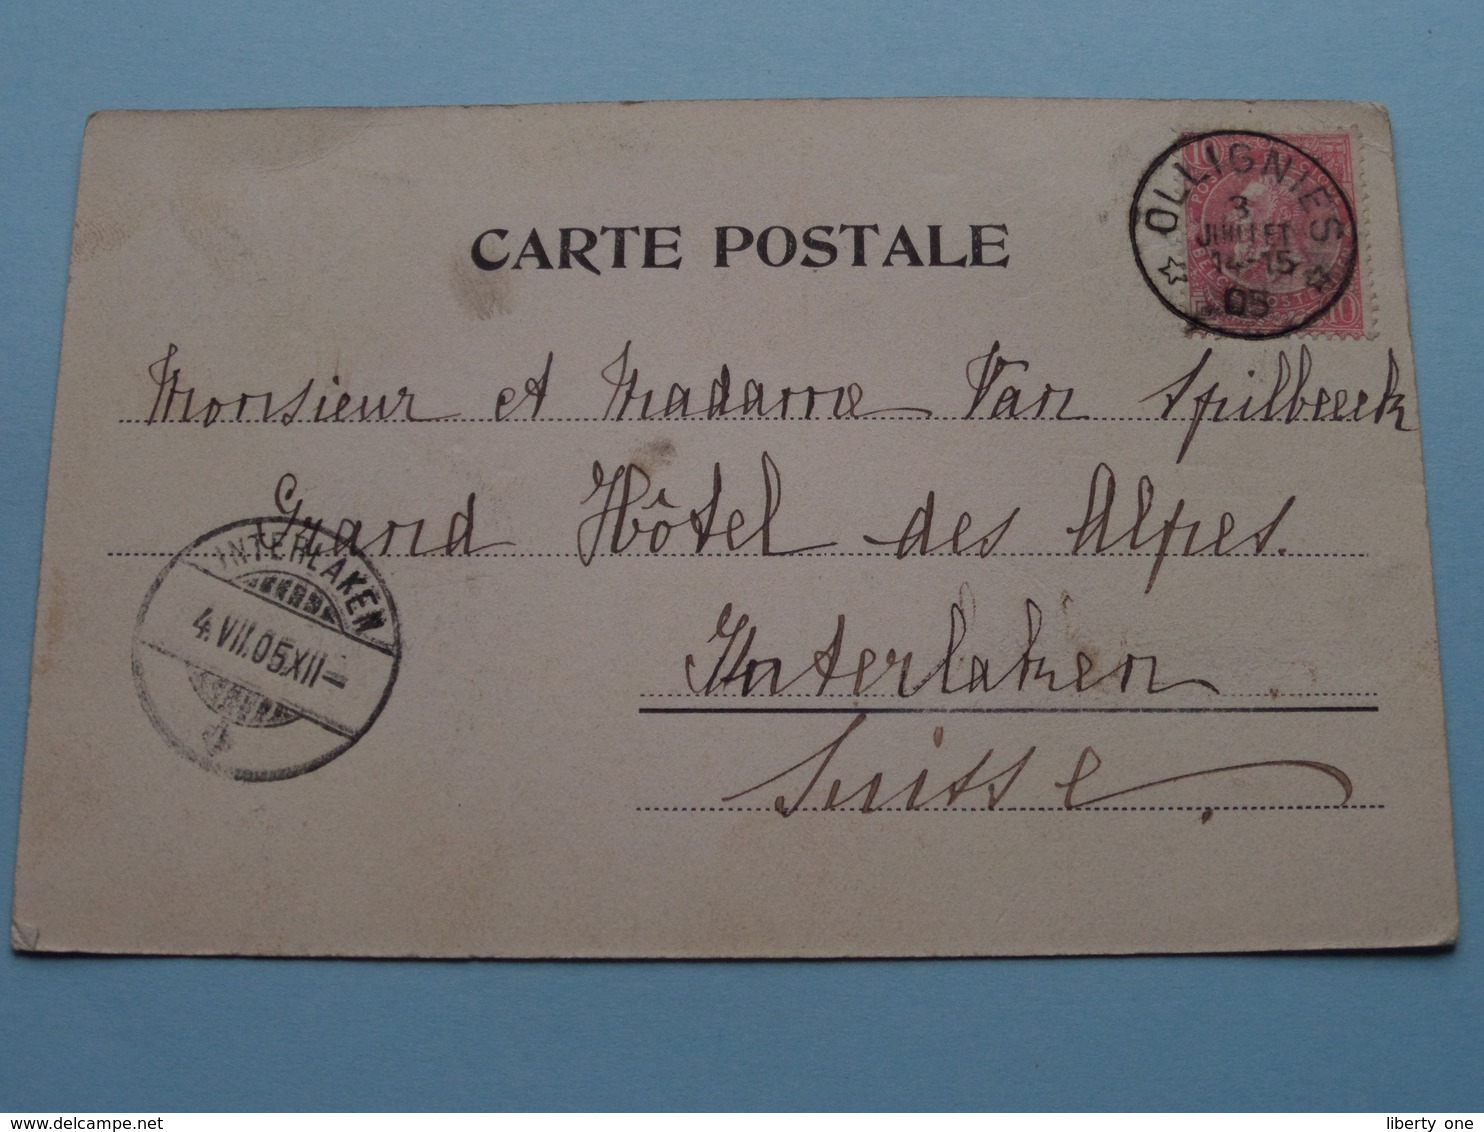 CARTE POSTALE
10
OLLIGNIES
3
JUILLET
14-15
05
10
Monsieur et Madame Van Spilbeeck
Grand Hôtel des Alpes.
Interlaken
Suisse
INTERLAKEN
4.VII.05.XII-
© delcampe.net
liberty one